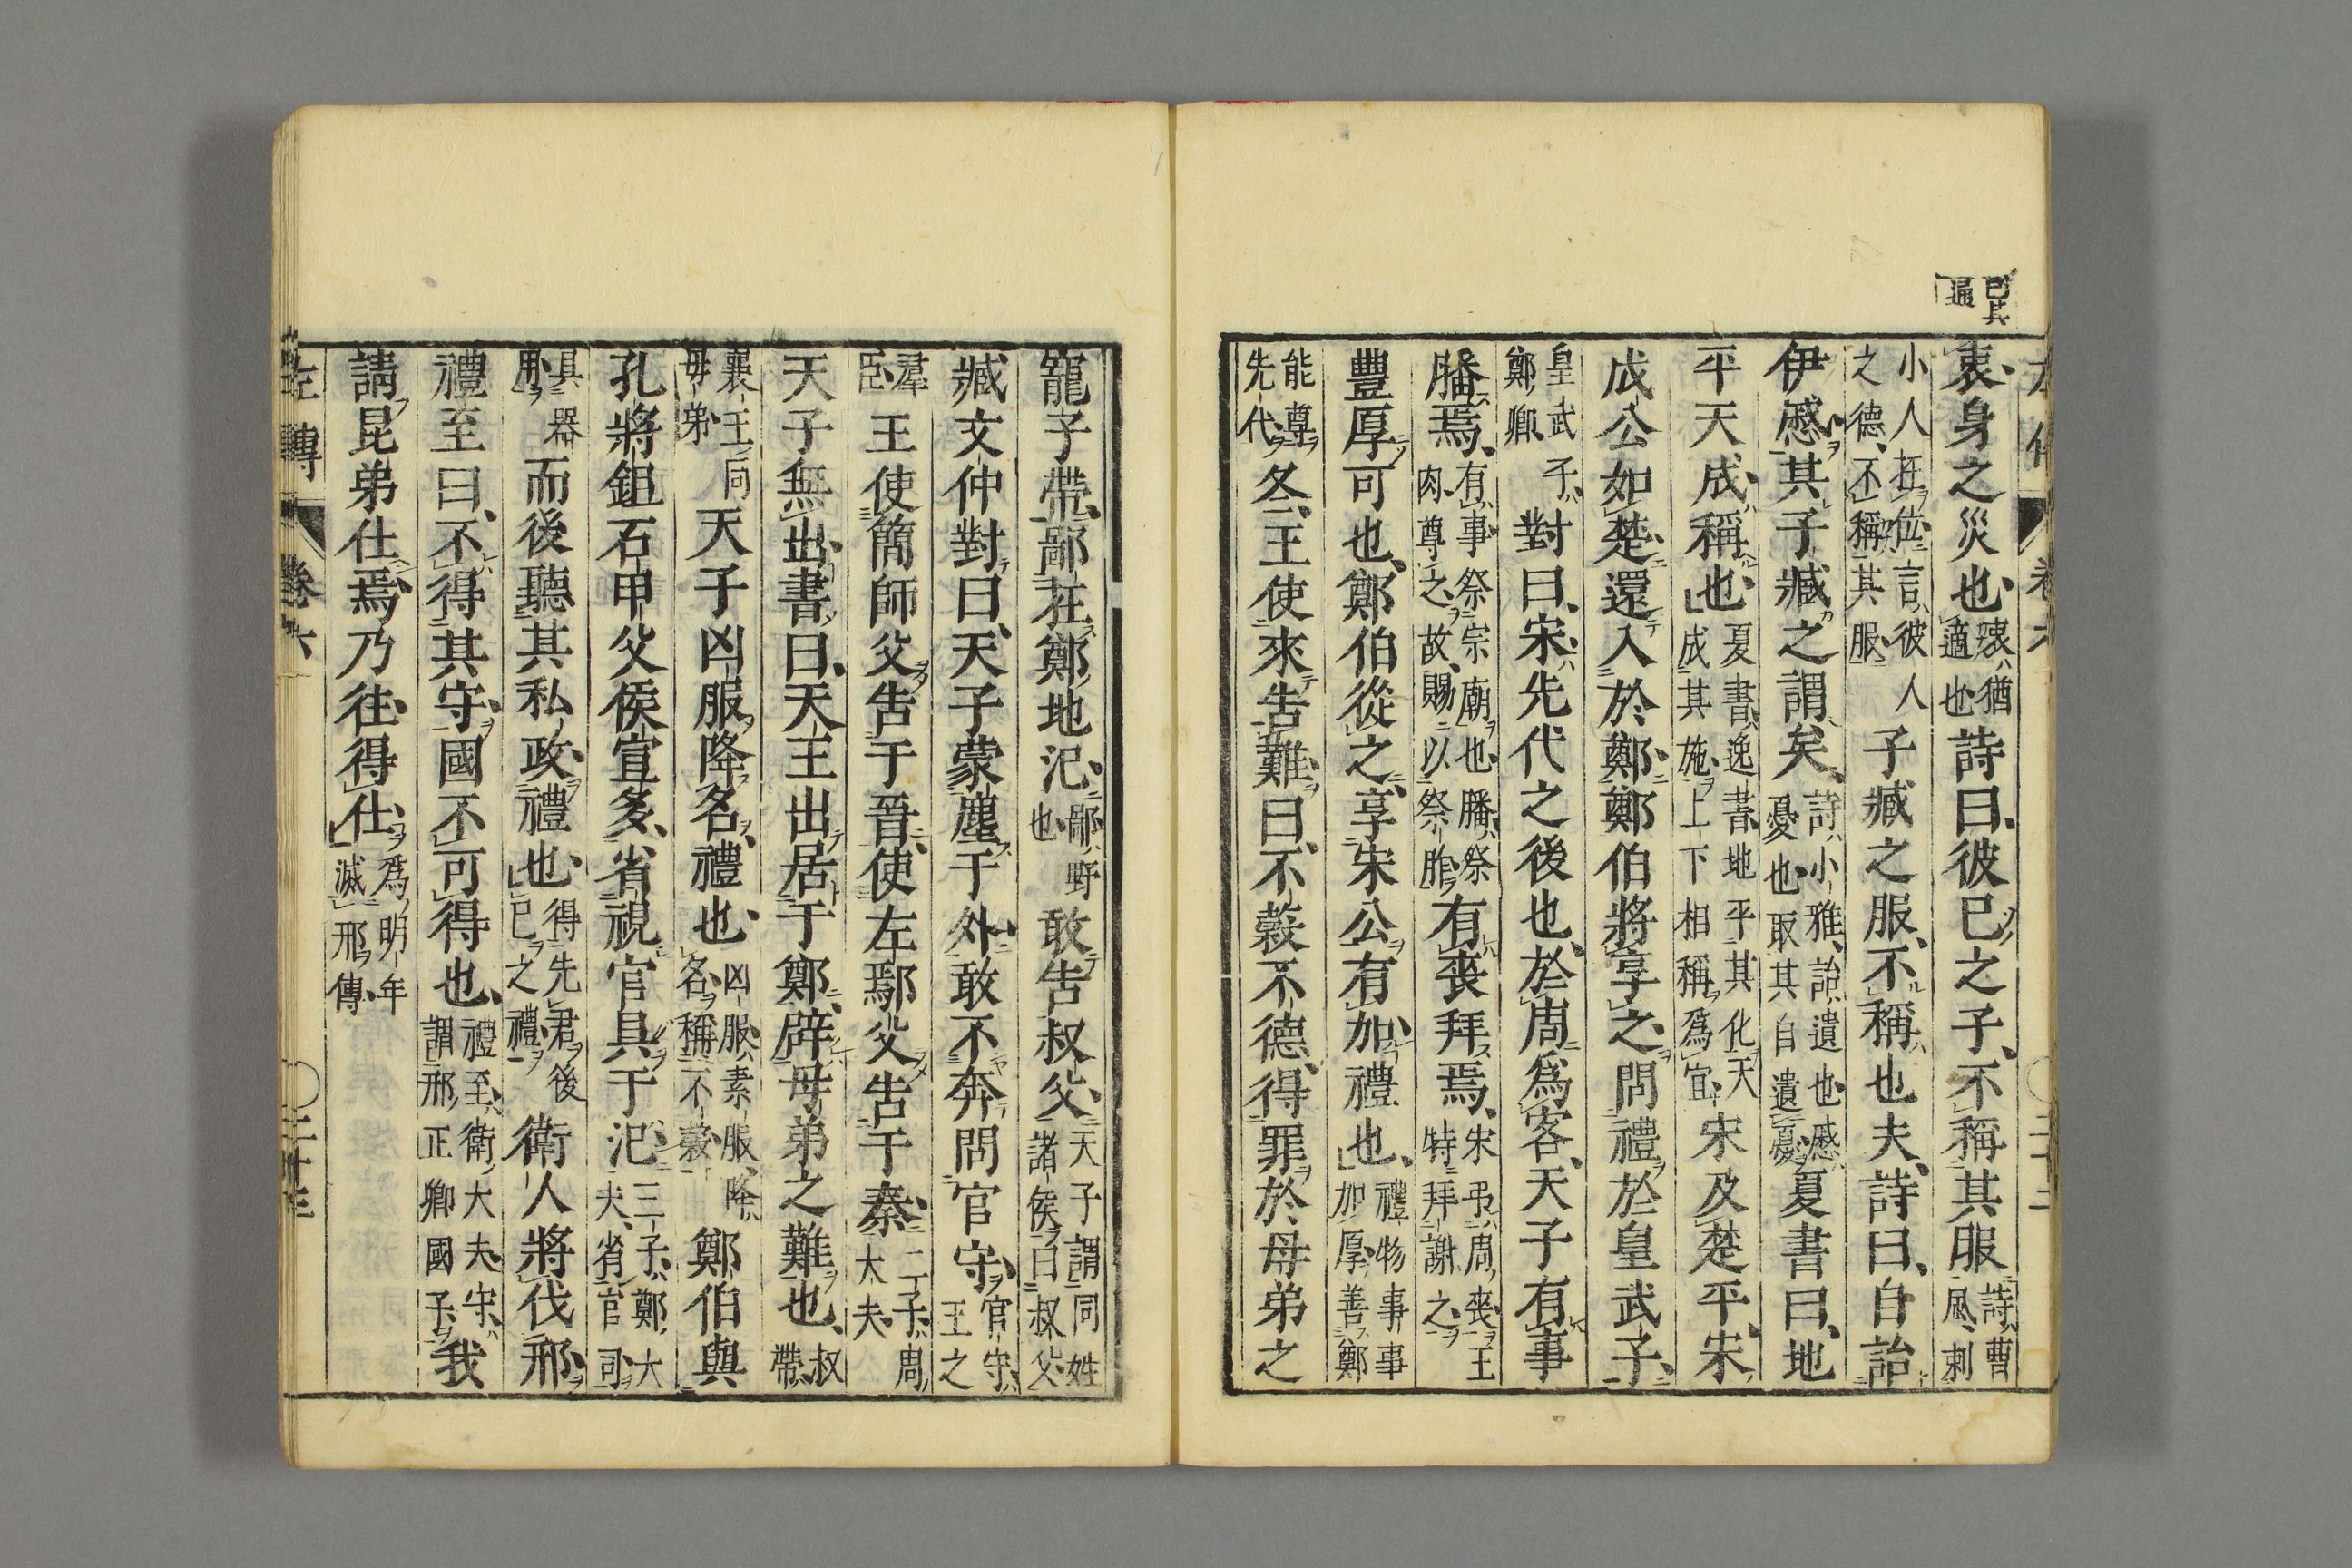 已其
過
衷身之災也衷猶適也詩曰彼已之子不稱其服詩曹風刺
小人在位言彼人之德不稱其服子臧之服不稱也夫詩曰自詒
伊慼其子臧之謂矣詩小雅詒遺也慼憂也取其自遺憂夏書曰地
平天成稱也夏書逸書地平其化天成其施上下相稱爲宜宋及楚平宋
成公如楚還入於鄭鄭伯將享之問禮於皇武子
皇武子鄭卿對曰宋先代之後也於周爲客天子有事
膰焉有事祭宗廟也膰祭肉尊之故賜以祭胙有喪拜焉宋弔周喪王特拜謝之
豐厚可也鄭伯從之享宋公有加禮也禮物事事加厚善鄭
能尊先代冬王使來告難曰不穀不德得罪於母弟之
寵子帶鄙在鄭地氾鄙野也敢告叔父天子謂同姓諸侯曰叔父
臧文仲對曰天子蒙塵于外敢不奔問官守官守王之
羣臣王使簡師父告于晉使左鄢父告于秦二子周大夫
天子無出書曰天王出居于鄭辟母弟之難也叔帶
襄王同母弟天子凶服降名禮也凶服素服降名稱不穀鄭伯與
孔將鉏石甲父侯宣多省視官具于氾三子鄭大夫省官司
具器用而後聽其私政禮也得先君後己之禮衛人將伐邢
禮至曰不得其守國不可得也禮至衛大夫守謂邢正卿國子我
請昆弟仕焉乃往得仕爲明年滅邢傳
左傳 卷六 二十三